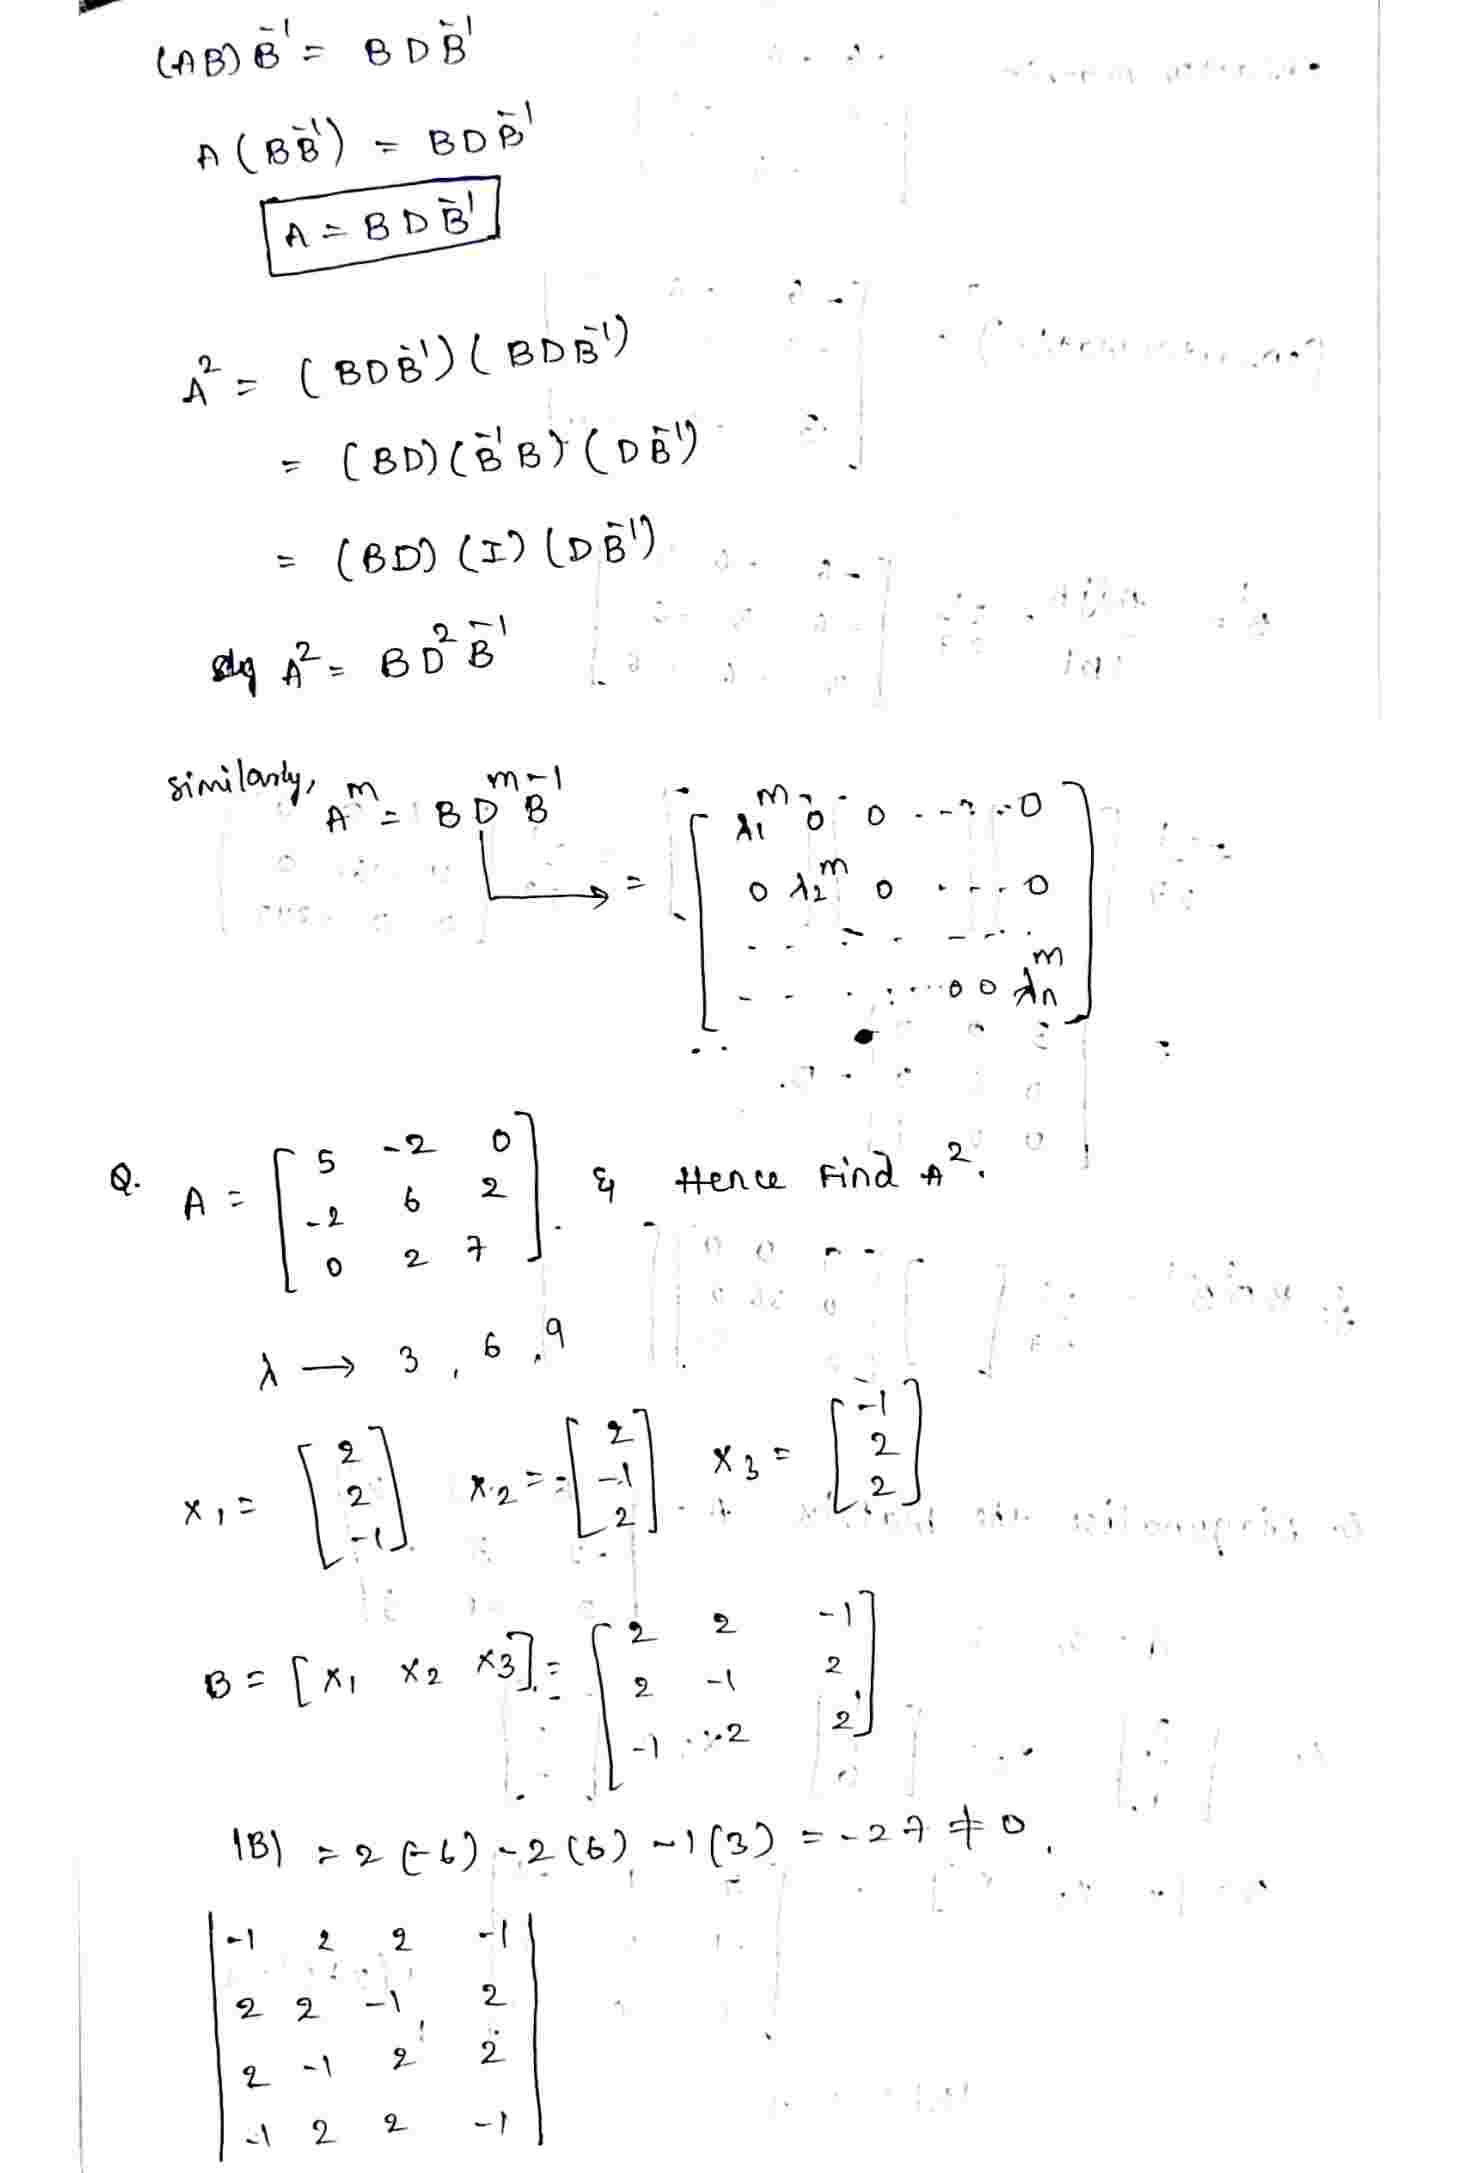 (AB) B⁻¹ = B D B⁻¹
A (B B⁻¹) = B D B⁻¹
A = B D B⁻¹
A² = (B D B⁻¹) (B D B⁻¹)
= (BD) (B⁻¹ B) (D B⁻¹)
= (BD) (I) (D B⁻¹)
A² = B D² B⁻¹
similarly, Aᵐ = B Dᵐ B⁻¹
= [ λ₁ᵐ 0 0 - - - - 0
0 λ₂ᵐ 0 - - - 0
- - - - - - -
- - - - - - 0 0 λₙᵐ ]
Q. A = [ 5 -2 0
-2 6 2
0 2 7 ] & Hence Find A².
λ → 3, 6, 9
x₁ = [ 2 2 -1 ] x₂ = [ 2 -1 2 ] x₃ = [ -1 2 2 ]
B = [ x₁ x₂ x₃ ] = [ 2 2 -1
2 -1 2
-1 2 2 ]
|B| = 2 (-6) - 2 (6) - 1 (3) = -27 ≠ 0.
| -1 2 2 -1 |
| 2 2 -1 2 |
| 2 -1 2 2 |
| -1 2 2 -1 |